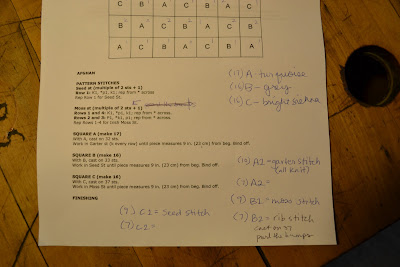 C B A C B A C
B A C B A C B
A C B A C B A
AFGHAN
PATTERN STITCHES
Seed st (multiple of 2 sts + 1)
Row 1: K1, *p1, k1; rep from * across.
Rep Row 1 for Seed St.
Moss st (multiple of 2 sts + 1)
Rows 1 and 4: K1, *p1, k1; rep from * across.
Rows 2 and 3: P1, *k1, p1; rep from * across.
Rep Rows 1-4 for Irish Moss St.
SQUARE A (make 17)
With A, cast on 33 sts.
Work in Garter st (k every row) until piece measures 9 in. (23 cm) from beg. Bind off.
SQUARE B (make 16)
With B, cast on 33 sts.
Work in Seed St until piece measures 9 in. (23 cm) from beg. Bind off.
SQUARE C (make 16)
With C, cast on 37 sts.
Work in Moss St until piece measures 9 in. (23 cm) from beg. Bind off.
FINISHING
(17) A - turquoise
(16) B - grey
(16) C - bright
(10) A2 = garter stitch
(all knit)
(7) A2 =
(9) B1 = moss stitch
(7) B2 = rib stitch
cast on 37
purl the bumps
(9) C1 = seed stitch
(7) C2 =